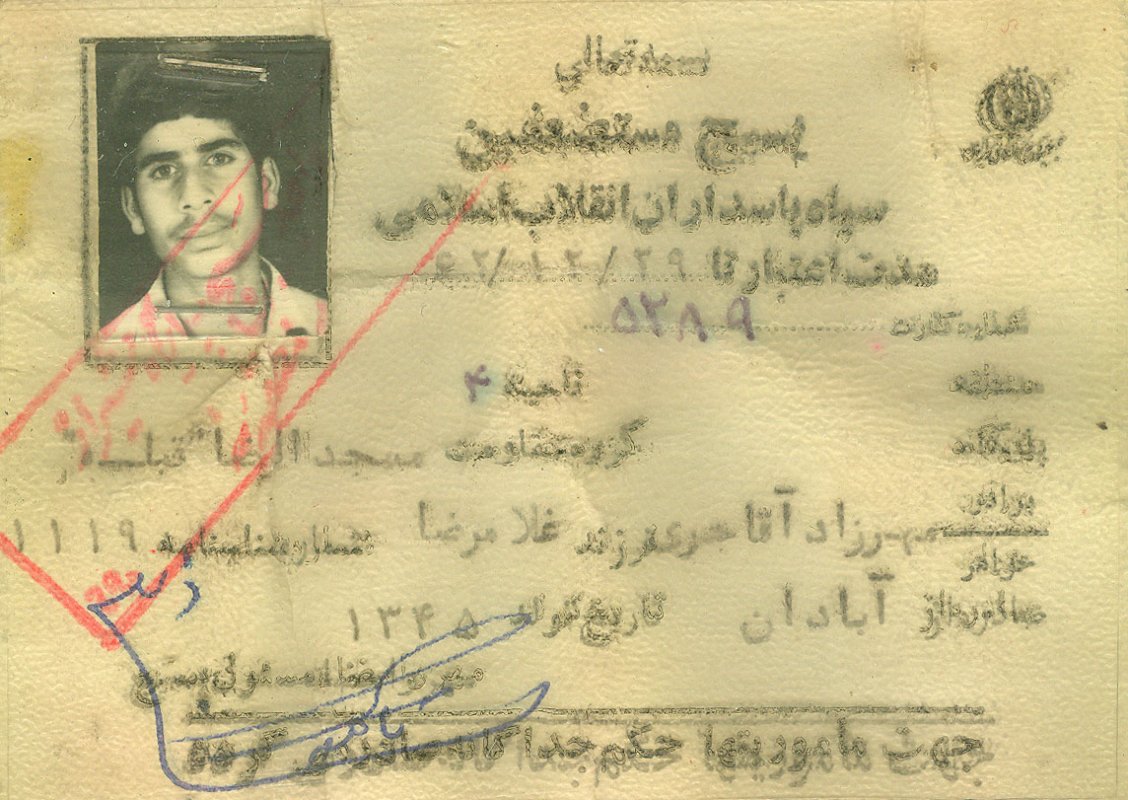 بسمه تعالی
بسیج مستضعفین
سپاه پاسداران انقلاب اسلامی
مدت اعتبار تا ۶۲/۱۲/۲۹
شماره کارت ۵۲۸۹
منطقه ناحیه ۴
پایگاه گروه مقاومت مسجد الرضا
برادر
مهرزاد آقاجری فرزند غلامرضا شماره شناسنامه ۱۱۱۹
خواهر
صادره از آبادان تاریخ تولد ۱۳۴۵
مهر و امضاء مسئول بسیج
جهت ماموریتها حکم جداگانه صادر می گردد